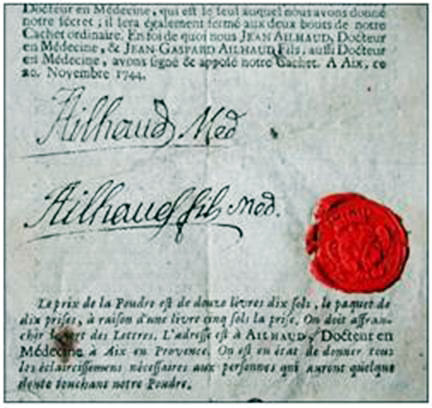 Docteur en Médecine, qui est le seul auquel nous avons donné
notre secret; il sera également fermé aux deux bouts de notre
Cachet ordinaire. En foi de quoi nous JEAN AILHAUD, Docteur
en Médecine, & JEAN-GASPARD AILHAUD Fils, aussi Docteur
en Médecine, avons signé & apposé notre Cachet. A Aix, ce
20. Novembre 1744.
Ailhaud Med
Ailhaud fils Med.
Le prix de la Poudre est de douze livres dix sols, le paquet de
dix prises, à raison d'une livre cinq sols la prise. On doit affran-
chir le port des Lettres. L'adresse est à AILHAUD, Docteur en
Médecine à Aix en Provence. On est en état de donner tous
les éclaircissemens nécessaires aux personnes qui auront quelque
doute touchant notre Poudre.